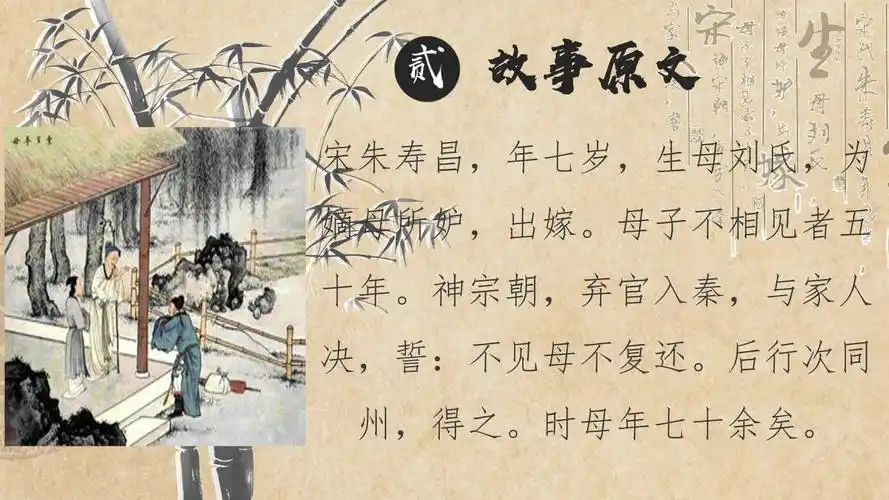 贰 故事原文
宋朱寿昌，年七岁，生母刘氏，为
嫡母所妒，出嫁。母子不相见者五
十年。神宗朝，弃官入秦，与家人
决，誓：不见母不复还。后行次同
州，得之。时母年七十余矣。